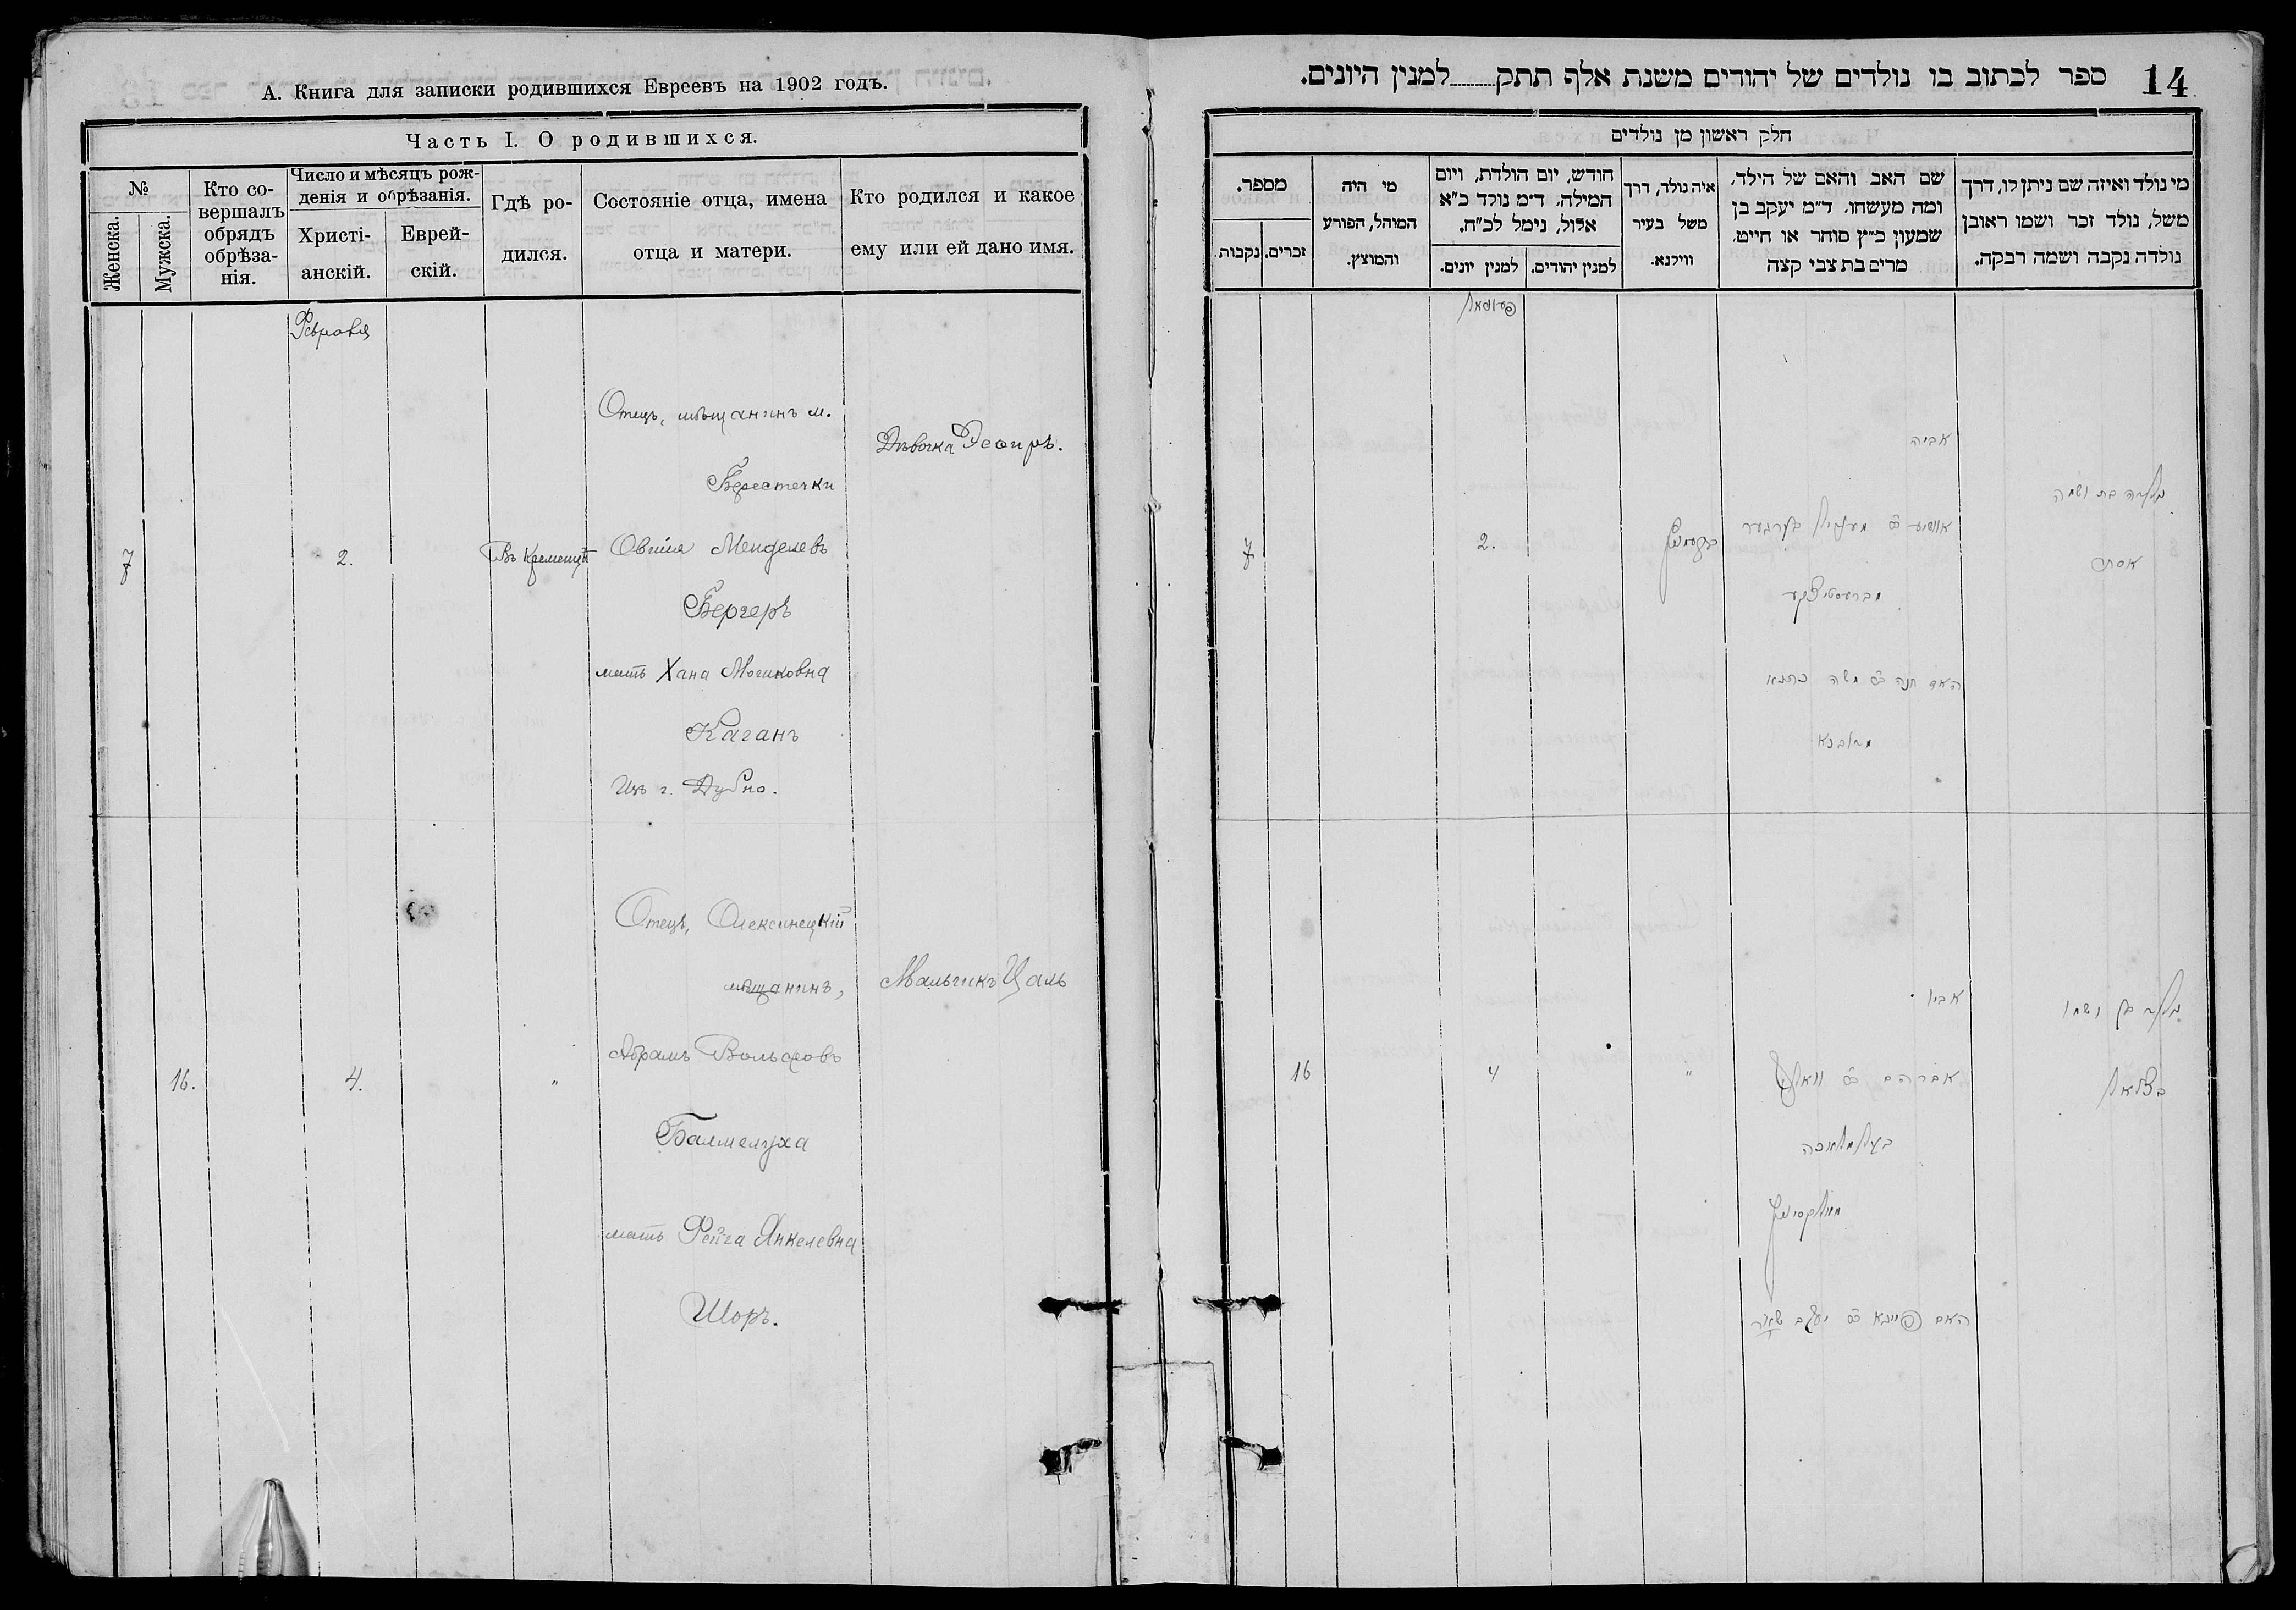 А. Книга для записки родившихся Евреевъ на 1902 годъ.
Часть I. О родившихся.
№
Женска.
Мужска.
Кто со-
вершалъ
обрядъ
обрѣза-
нія.
Число и мѣсяцъ рож-
денія и обрѣзанія.
Христі-
анскій.
Еврей-
скій.
Гдѣ ро-
дился.
Состояніе отца, имена
отца и матери.
Кто родился и какое
ему или ей дано имя.
Февраля
7
2.
Въ Кременцѣ
Отецъ, мѣщанинъ м.
Берестечки
Овшія Менделевъ
Бергеръ
мать Хана Мошковна
Каганъ
Изъ г. Дубно.
Дѣвочка Эсѳиръ.
16.
4.
"
Отецъ, Олексинецкій
мѣщанинъ,
Абрамъ Вольфовъ
Балмелуха
мать Фейга Янкелевна
Шоръ.
Мальчикъ Цаль
ספר לכתוב בו נולדים של יהודים משנת אלף תתק למנין היונים.
14
חלק ראשון מן נולדים
מי נולד ואיזה שם ניתן לו, דרך
משל, נולד זכר ושמו ראובן
נולדה נקבה ושמה רבקה.
שם האב והאם של הילד,
ומה מעשהו. ד"מ יעקב בן
שמעון כ"ץ סוחר או חייט,
מרים בת צבי קצה
איה נולד, דרך
משל בעיר
ווילנא.
חודש, יום הולדת, ויום
המילה. ד"מ נולד כ"א
אלול, נימל לכ"ח.
למנין יהודים.
למנין יונים.
מי היה
המוהל, הפורע
והמוצץ.
מספר.
זכרים.
נקבות.
נולדה בת ושמה
אסתר
אביה
מברעסטיצקע
2.
7
נולד בן ושמו
בצלאל
אביו
אברהם וואלף
האם פייגא יעקב שאור
"
4
16